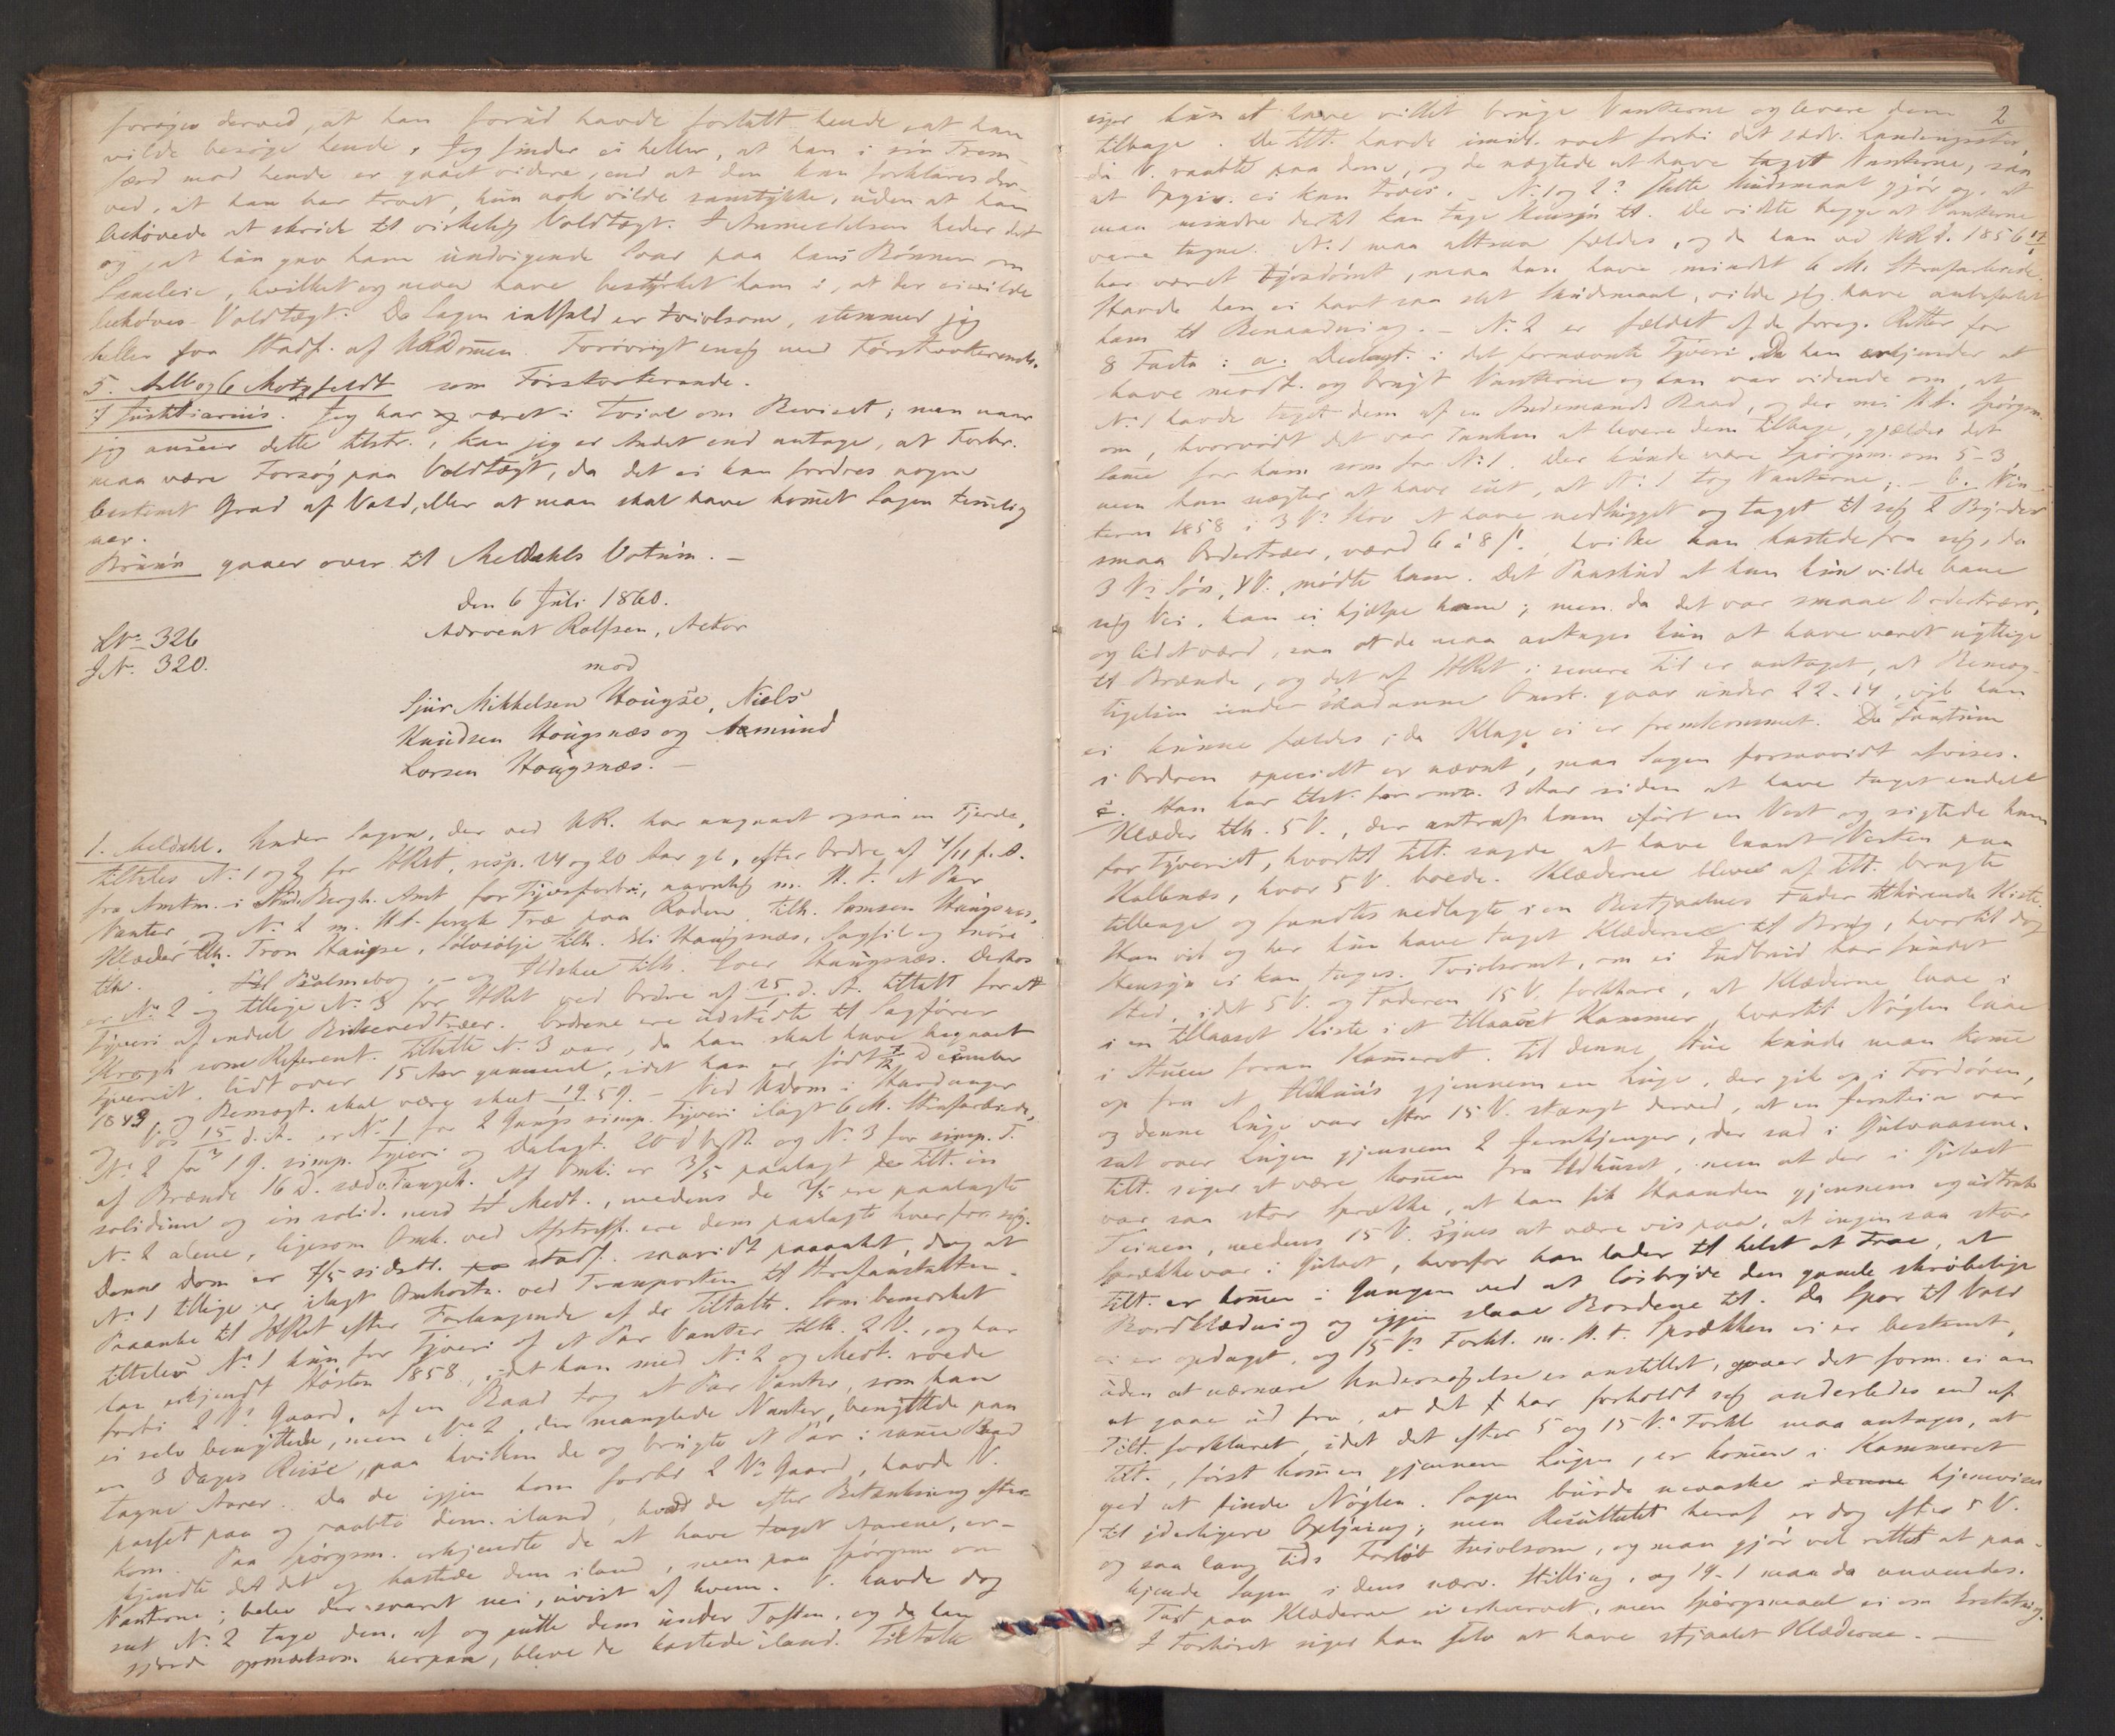 forøges derved, at han forud havde fortalt hende, at han
vilde besøge hende. Jeg finder ei heller, at han i sin Frem-
færd mod hende er gaaet videre, end at den kan forklares der-
ved, at han har troet, hun nok vilde samtykke, uden at han
behøvede at skride til virkelig Voldtægt. I Anmeldelsen heder det
og, at hun gav ham undvigende Svar paa hans Bønner om
Samleie, hvilket og maa have bestyrket ham i, at der ei vilde
behøves Voldtægt. Da Sagen ialfald er tvivlsom, stemmer jeg
heller for Stadf. af URDommen. Forøvrigt enig med Førstvoterende.
5. og 6 Motzfeldt som Førstvoterende.
7 Justitiarius. Jeg har og været i Tvivl om Beviset; men naar
jeg anseer dette tilstr., kan jeg ei Andet end antage, at Forbr.
maa være Forsøg paa Voldtægt, da det ei kan fordres nogen
bestemt Grad af Vold, eller at man skal have kommet Sagen temmelig
nær.
Bruun gaaer over til Meldahls Votum. —
Den 6 Juli 1860.
LNo 326
J.N. 320.
Advocat Rolfsen, Actor
mod
Sjur Mikkelsen Hougse, Niels
Knudsen Hougsnæs og Aamund
Larsen Hougsnæs. —
1. Meldahl. Under Sagen, der ved UR. har angaaet ogsaa en Fjerde,
tiltales No 1 og 2 for HRet, resp. 24 og 20 Aar gl., efter Ordre af 4/11 f. A.
fra Amtm. i Søndre Bergh. Amt for Tyvsforbr., navnlig m. H. t. et Par
Vanter, og No 2 m. H. t. Træ paa Roden, tilh. Samson Haugsnæs,
Klæder tilh. Tron Haugse, Sølvsølje tilh. Eli Haugsnæs, Sagfil og Snøre
tilh. Psalmebog, — og Ildskee tilh. Iver Haugsnæs. Derhos
er No 2 og tillige No 3 for HRet ved Ordre af 25 d. A. tiltalt for et
Tyveri af endeel Birkevedtræer. Ordrene ere udstedte til Sagfører
Krogh som Referent. Tiltalte No 3 var, da han skal have begaaet
Tyveriet, lidt over 15 Aar gammel, idet han er født 7/12 December
1843 og Bemægt. skal være skeet 19.59. — Ved Udom i Hardanger
og Vos 15 d. A. er No 1 for 2 Gangs simp. Tyveri ilagt 6 M. Strafarbeide,
No 2 for 1 g. simp. Tyveri og Delagt. 20 d V&B. og No 3 for simp. T.
af Brænde 16 D. sædv. Fangek. Af Omk. er 3/5 paalagt de Tilt. in
solidum og in solid. med td Medt., medens de 2/5 ere paalagte
No 2 alene, ligesom Omk. ved Afstraff. ere dem paalagte hver for sig.
Denne Dom er 7/5 sidstl. stadf. saavidt paaanket, dog at
No 1 tillige er ilagt Omkostn. ved Transporten til Strafanstalten.
Paaanke til HRet efter Forlangende af de Tiltalte. Som bemærket
tiltales No 1 kun for Tyveri af et Par Vanter tilh. 2 V., og har
han erkjendt Høsten 1858, idet han med No 2 og Medt. roede
forbi 2 Vs Gaard, af en Baad tog et Par Vanter, som han
ei selv benyttede, men No 2, der manglede Vanter, benyttede paa
en 3 Dages Reise, paa hvilken de og brugte et Par i samme Baad
tagne Aarer. Da de igjen kom forbi 2 Vs Gaard, havde V.
passet paa og raabte dem iland, hvad de efter Betænkning efter-
kom. Paa Spørgsm. erkjendte de at have taget Aarene, er-
kjendte det det og kastede dem iland, men paa Spørgsm. om
Vanterne; blev der svaret nei, uvist af hvem. V. havde dog
set No 2 tage dem af og putte dem under Toften, og da han
gjorde opmærksom herpaa, bleve de kastede iland. Tiltalte
2
siger kun at have villet bruge Vanterne og levere dem
tilbage. De tilt. havde imidl. roet forbi det sædv. Landingssted,
da V. raabte paa dem, og de nægtede at have taget Vanterne, saa
at Opgiv. ei kan troes. No 1 og 2s slette Skudsmaal gjør og, at
man mindre dertil kan tage Hensyn til. De vidste begge at Vanterne
vare tagne. No 1 maa altsaa fældes, og da han ved URd. 1856
har været tyvsdømt, maa han have mindst 6 M. Strafarbeide.
Havde han ei havt saa slet Skudsmaal, vilde jeg have anbefalet
ham til Benaadning. — No. 2 er fældet af de foreg. Retter for
8 Facta: a. Deelagt. i det fornævnte Tyveri. Da han erkjender at
have modt. og brugt Vanterne og han var vidende om, at
No 1 havde taget dem af en Andenmands Baad, og der m. H. t. Spørgsm.
om, hvorvidt det var Tanken at levere dem tilbage, gjælder det
samme for ham som for No 1. Der kunde være Spørgsm. om 5–3,
men han nægter at have seet, at No 1 tog Vanterne; — b. Vin-
teren 1858 i 3 Vs Skov at have nedhugget og taget til sig 2 Byrder
smaa Ordertræer, værd 6 à 8 ß., hvilke han kastede fra sig, da
3 Vs Søn, 4 V., mødte ham. Det Paaskud at han kun vilde bane
sig Vei, kan ei hjælpe ham; men da det var smaae Ordertræer,
og lidet værd, saa at de maa antages kun at have været nyttige
til Brænde, og det af HRet i senere Tid er antaget, at Bemæg-
tigelsen under saadanne Omst. gaaer under 22-14, vil han
ei kunne fældes, da Klage ei er fremkommet. Da Factum
i Ordren specielt er nævnt, maa Sagen forsaavidt afvises.
c. Han har tilst. for omtr. 3 Aar siden at have taget endeel
Klæder tilh. 5 V., der antraf ham iført en Vest og sigtede ham
for Tyveriet, hvortil Tilt. sagde at have laant Vesten paa
Halbnæs, hvor 5 V. boede. Klæderne bleve af Tilt. bragte
tilbage og fandtes nedlagte i en Fader tilhørende Kiste.
Han vil og her kun have taget Klæderne til Brug, hvortil dog
Hensyn ei kan tages. Tvivlsomt, om ei Indbrud har fundet
Sted, idet 5 V. og Faderen 15 V. forklare, at Klæderne laae i
i en tillaaset Kiste i et tillaaset Kammer, hvortil Nøglen laae
i Stuen foran Kammeret. Til denne Stue kunde man komme
op fra et Udhuus gjennem en Luge, der gik op i Fordøren,
og denne Luge var efter 15 V. stængt derved, at en Jerntein var
sat over Lugen gjennem 2 Jernkjenger, der sad i Gulvaasene.
Tilt. siger at være kommen fra Udhuset, men at der i Gulvet
var saa stor Sprække, at han fik Haanden gjennem og udtrak
Teinen, medens 15 V. synes at være vis paa, at ingen saa stor
Sprække var i Gulvet, hvorfor han lader til helst at troe, at
Tilt. er kommen i Gangen ved at løsbryde den gamle skrøbelige
Bordklædning og igjen slaae Bordene til. Da Spor til Vold
ei er opdaget, og 15 Vs Forkl. m. H. t. Sprækken ei er bestemt,
uden at nærmere Undersøgelse er anstillet, gaaer det form. ei an
at gaae ud fra, at det har forholdt sig anderledes end af
Tilt. forklaret, idet det efter 5 og 15 Vs Forkl. maa antages, at
Tilt., først kommen gjennem Lugen, er kommen i Kammeret
ved at finde Nøglen. Sagen burde maaske hjemvises
til yderligere Oplysning; men Resultatet heraf er dog efter 5 V.
og saa lang Tids Forløb tvivlsom, og man gjør vel rettest at paa-
kjende Sagen i dens nærv. Stilling, og 19-1 maa da anvendes.
Taxt paa Klæderne ei erhvervet, men Spørgsmaal ei om Erstatning.
I Forhøret siger han selv at have stjaalet Klæderne. —